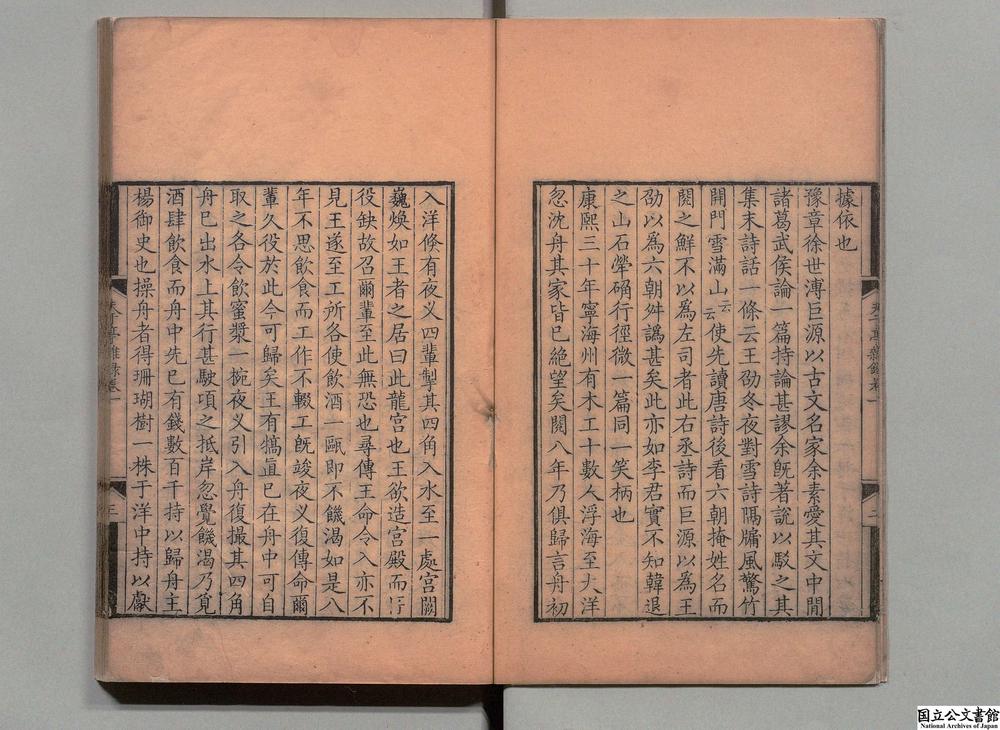 據依也
豫章徐世溥巨源以古文名家余素愛其文中間
諸葛武侯論一篇持論甚謬余既著說以駁之其
集末詩話一條云王劭冬夜對雪詩隔牖風驚竹
開門雪滿山云云使先讀唐詩後看六朝掩姓名而
閱之鮮不以為左司者此右丞詩而巨源以為王
劭以為六朝舛譌甚矣此亦如李君實不知韓退
之山石犖确行徑微一篇同一笑柄也
康熙三十年寧海州有木工十數人浮海至大洋
忽沈舟其家皆已絕望矣閱八年乃俱歸言舟初
入洋條有夜义四輩掣其四角入水至一處宮闕
巍煥如王者之居曰此龍宮也王欲造宮殿而行
役缺故召爾輩至此無恐也尋傳王命令入亦不
見王遂至工所各使飲酒一甌即不饑渴如是八
年不思飲食而工作不輟工既竣夜义復傳命爾
輩久役於此今可歸矣王有犒直已在舟中可自
取之各令飲蜜漿一椀夜义引入舟復撮其四角
舟已出水上其行甚駛項之抵岸忽覺饑渴乃覓
酒肆飲食而舟中先已有錢數百千持以歸舟主
楊御史也操舟者得珊瑚樹一株于洋中持以獻
二
三
国立公文書館
National Archives of Japan